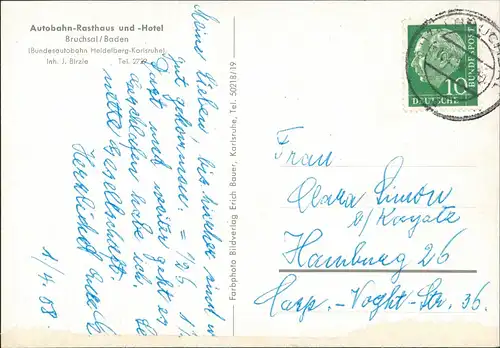 Autobahn-Rasthaus und -Hotel
Bruchsal/Baden
(Bundesautobahn Heidelberg-Karlsruhe)
Inh. J. Birzle Tel. 2729
Meine Lieben, bis hierher sind w
gut gekommen. = 125,
Durst und weiter geht es
ausschlafen habe ich.
nette Gesellschaft.
Herzlichst
1/4. 58.
Farbphoto Bildverlag Erich Bauer, Karlsruhe, Tel. 50218/19
10
DEUTSCHE BUNDESPOST
BRUCHSAL
Frau
Clara Simon
b/Kayatz
Hamburg 26
Carp.-Voght-Str. 36.